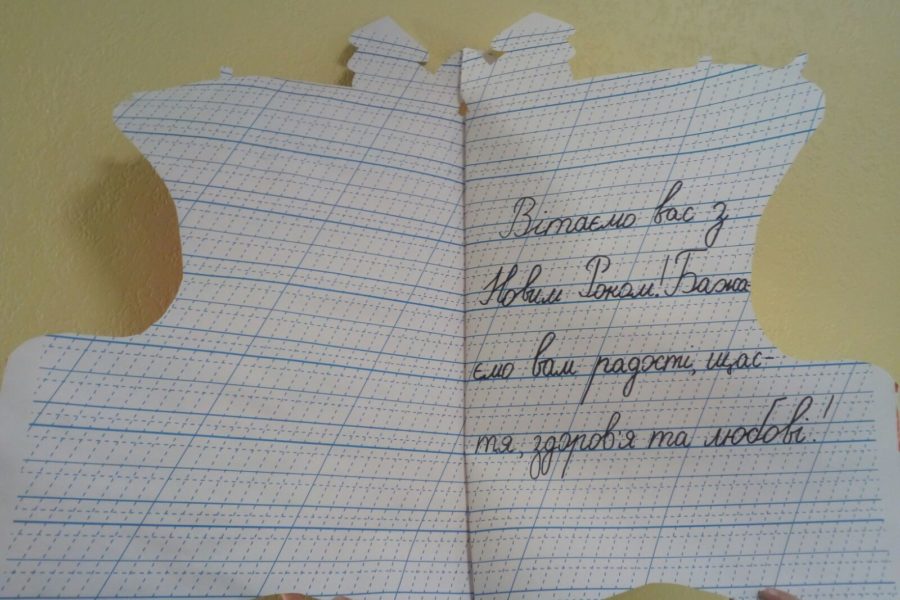 Вітаємо вас з
Новим Роком! Бажа-
ємо вам радости, щас-
тя, здоров'я та любові!